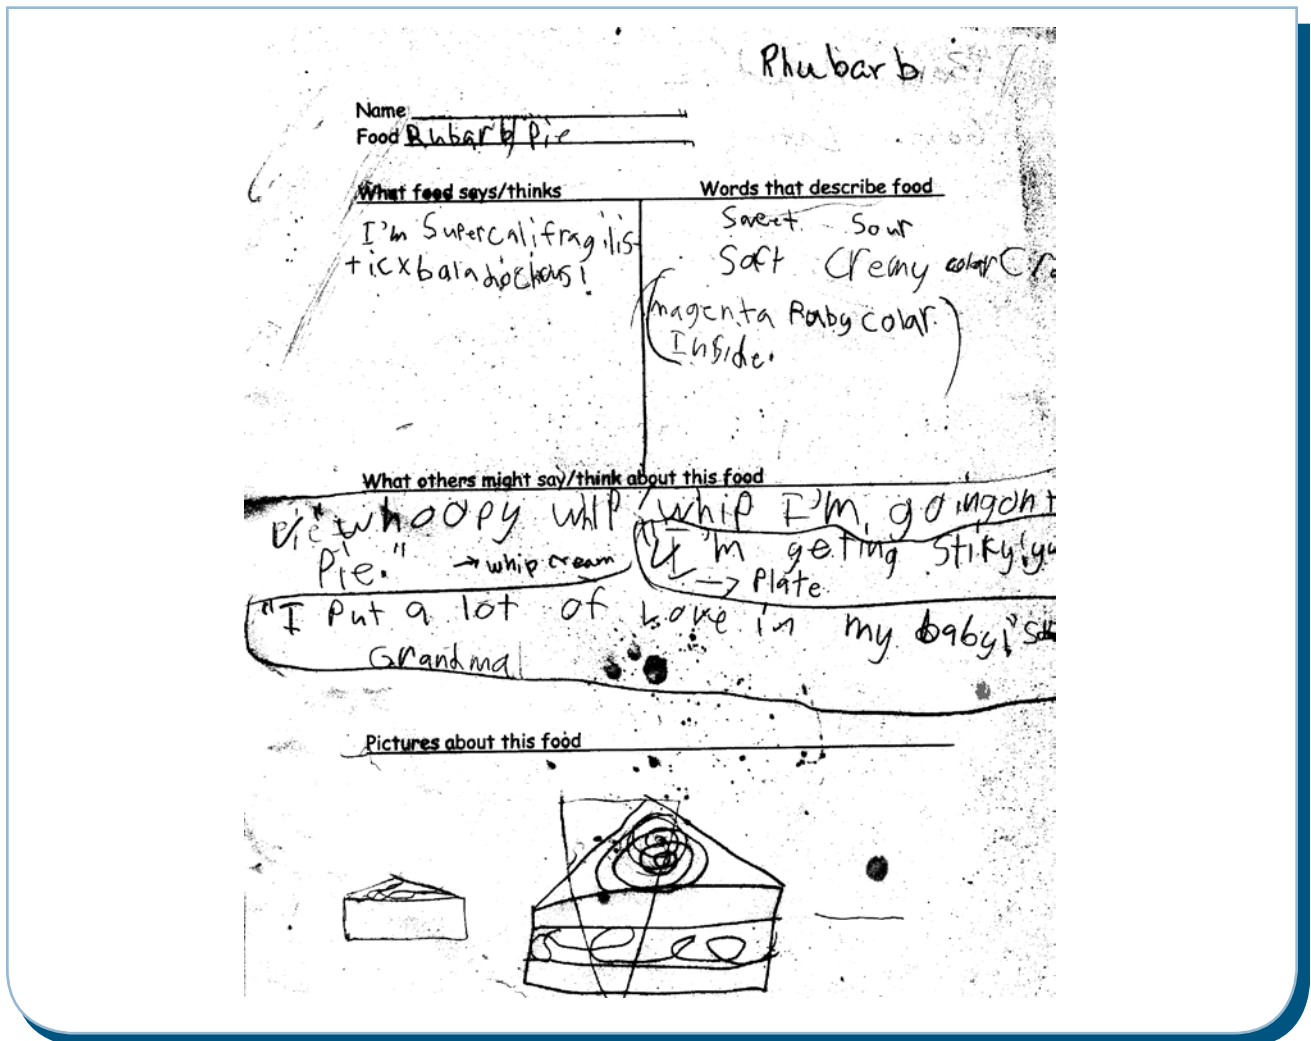 Rhubarb
Name
Food Rubarb Pie
What food says/thinks
I'm Supercalifragilis
ticxbaladocious!
Words that describe food
Sweet Sour
Soft Cremy color
(magenta Ruby colar
Inside.)
What others might say/think about this food
"whoopy whip whip I'm goingon
Pie." → whip cream
"I'm geting Stiky!
→ Plate
"I Put a lot of Love in my baby!"
Grandma
Pictures about this food